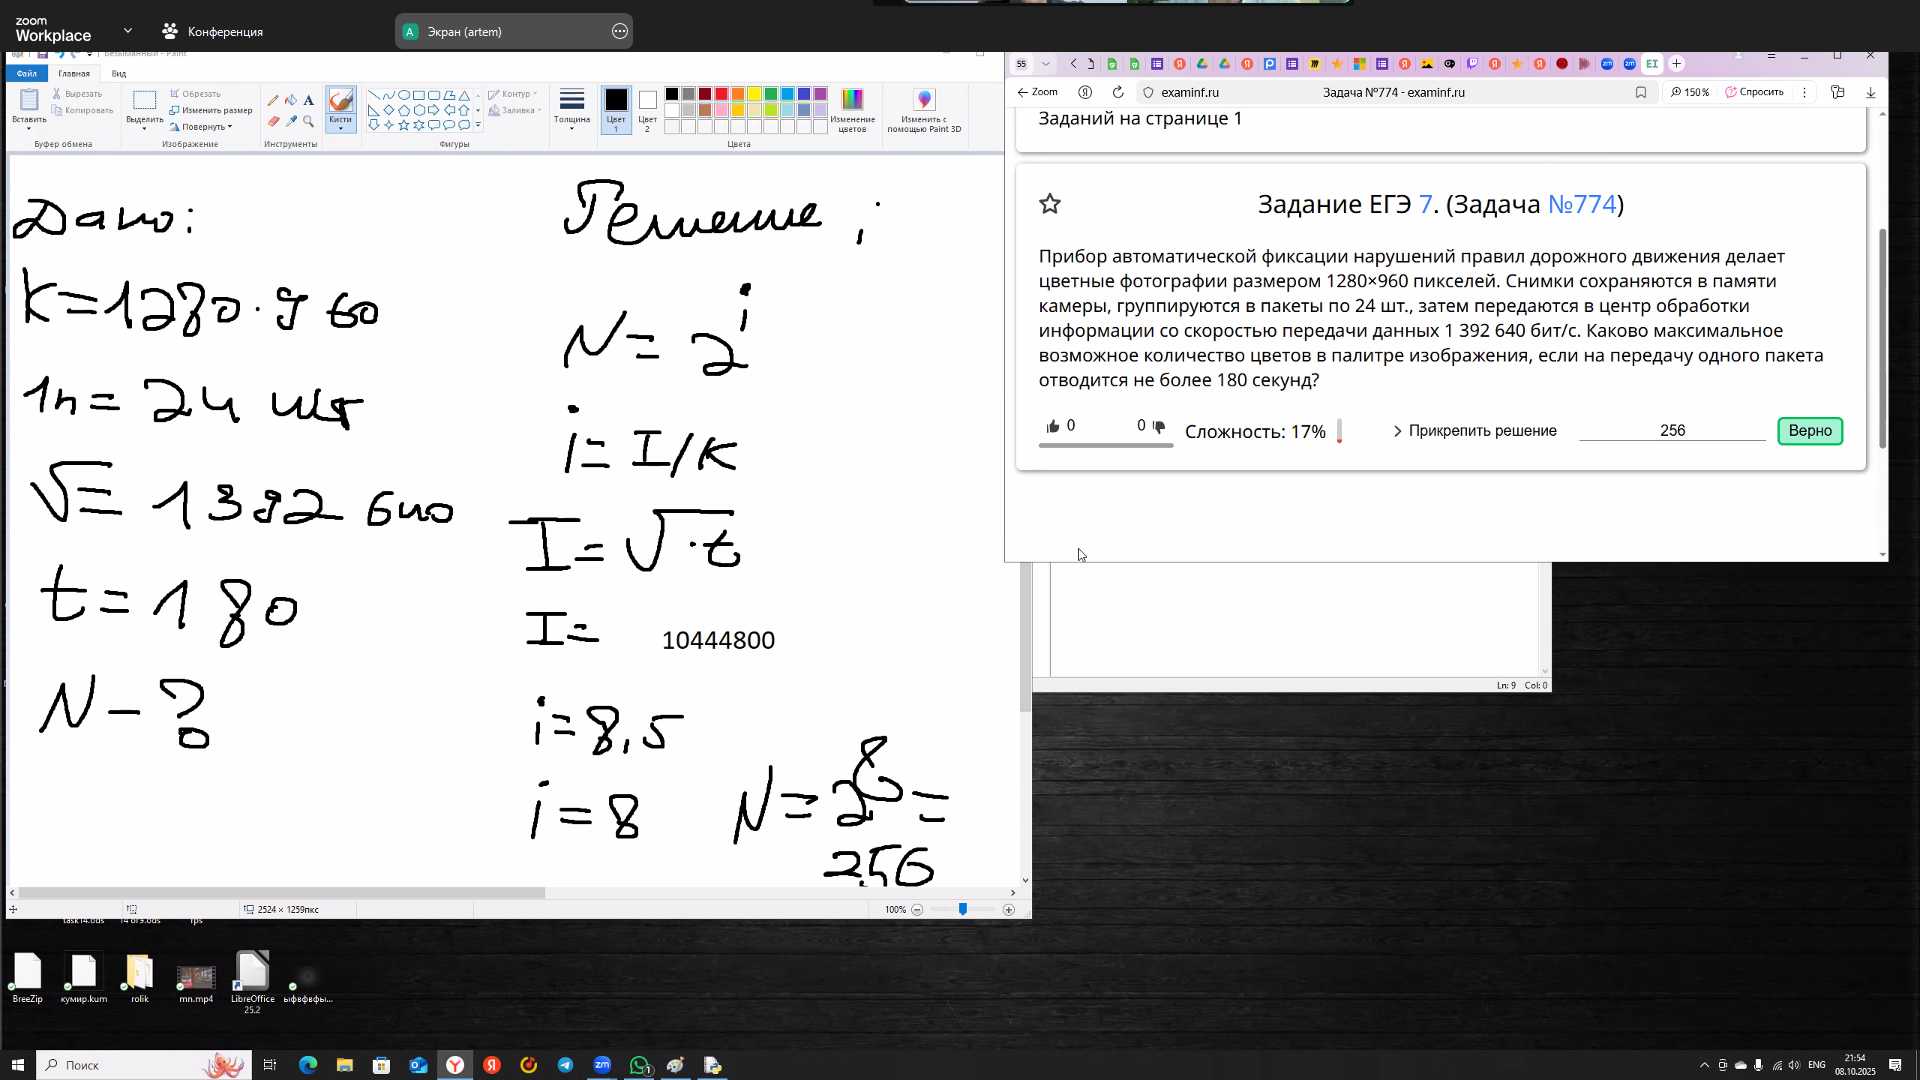 zoom
Workplace
Конференция
A Экран (artem)
Файл Главная Вид
Вставить
Вырезать
Копировать
Буфер обмена
Выделить
Обрезать
Изменить размер
Повернуть
Изображение
A
Инструменты
Кисти
Контур
Заливка
Фигуры
Толщина
Цвет 1
Цвет 2
Изменение цветов
Цвета
Изменить с помощью Paint 3D
Дано:
K=1280·960
1п= 24 шт
V= 1392 640
t=180
N-?
Решение;
N= 2^i
i= I/K
I= V·t
I= 10444800
i=8,5
i=8
N=2^8=
256
100%
2524 × 1259пкс
55
EI
Zoom
examinf.ru
Задача №774 - examinf.ru
150%
Спросить
Заданий на странице 1
Задание ЕГЭ 7. (Задача №774)
Прибор автоматической фиксации нарушений правил дорожного движения делает
цветные фотографии размером 1280×960 пикселей. Снимки сохраняются в памяти
камеры, группируются в пакеты по 24 шт., затем передаются в центр обработки
информации со скоростью передачи данных 1 392 640 бит/с. Каково максимальное
возможное количество цветов в палитре изображения, если на передачу одного пакета
отводится не более 180 секунд?
0 0 Сложность: 17% Прикрепить решение 256 Верно
Ln: 9 Col: 0
BreeZip
кумир.kum
rolik
mn.mp4
LibreOffice 25.2
ыфвфвфы...
Поиск
ENG
21:54
08.10.2025